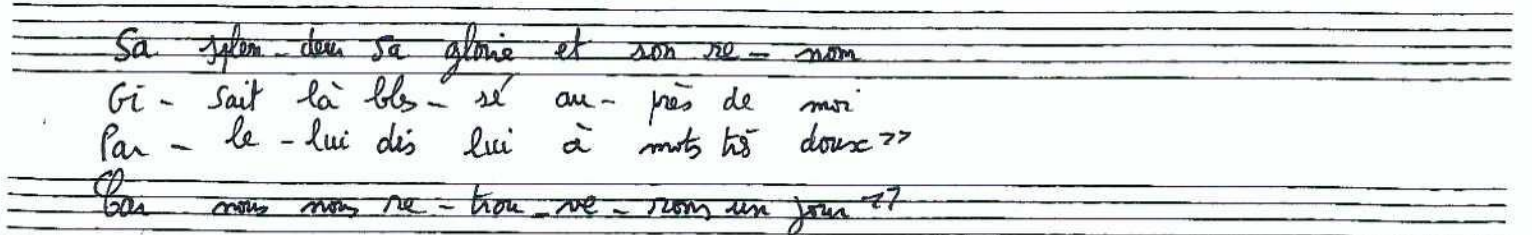 Sa splen-deur sa gloire et son re-nom
Gi-sait là bles-sé au-près de moi
Par-le-lui dis lui à mots très doux »
Car nous nous re-trou-ve-rons un jour »